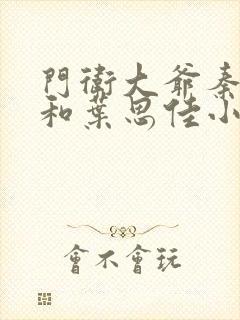 門衛大爺秦
和葉思佳小
會不會玩